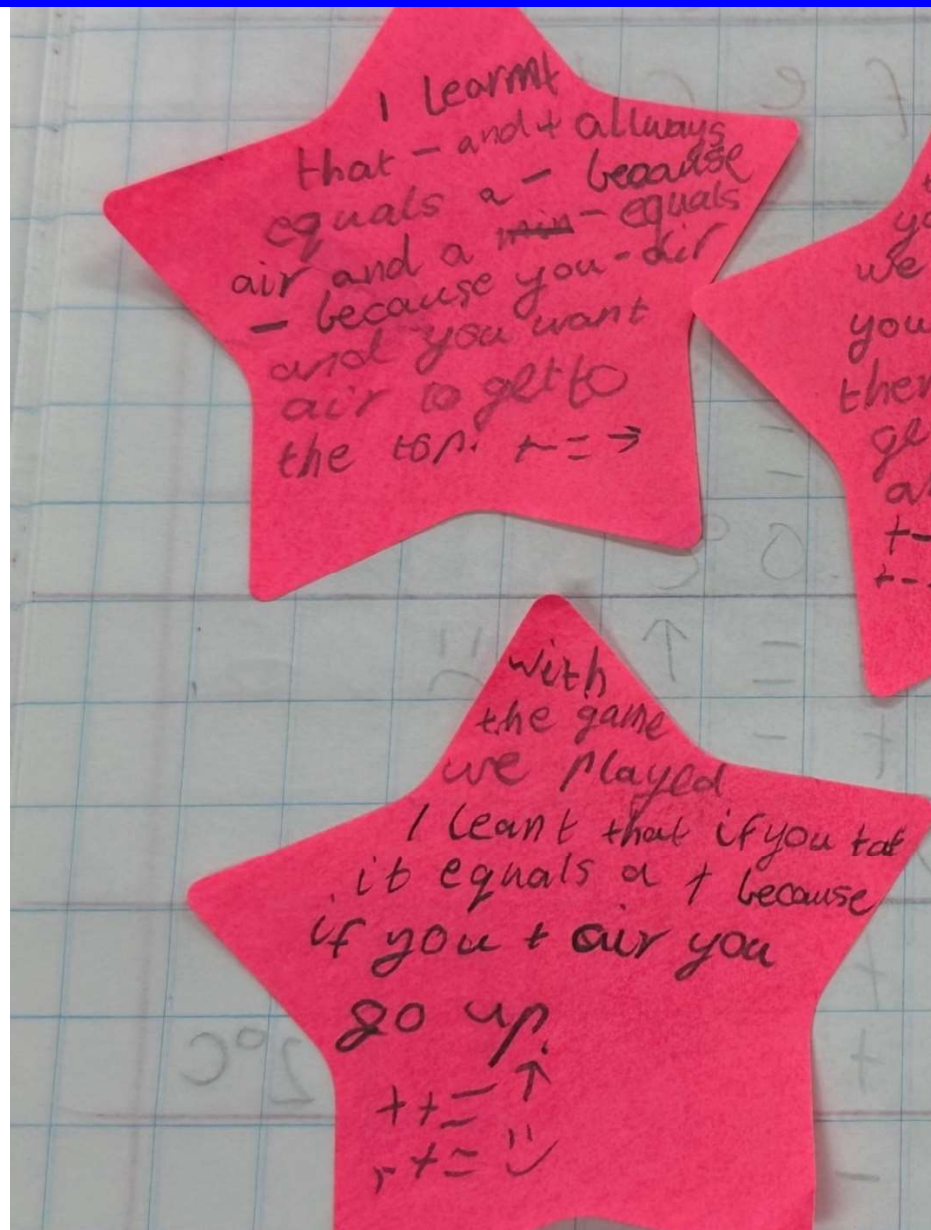 I Learnt
that - and + allways
equals a - because
air and a - equals
- because you - air
and you want
air to get to
the top. + - = →
yo
we
you
then
ge
a
+-
+-
with
the game
we played
I leant that if you + a +
it equals a + because
if you + air you
go up.
+ + = ↑
+ =
2°C